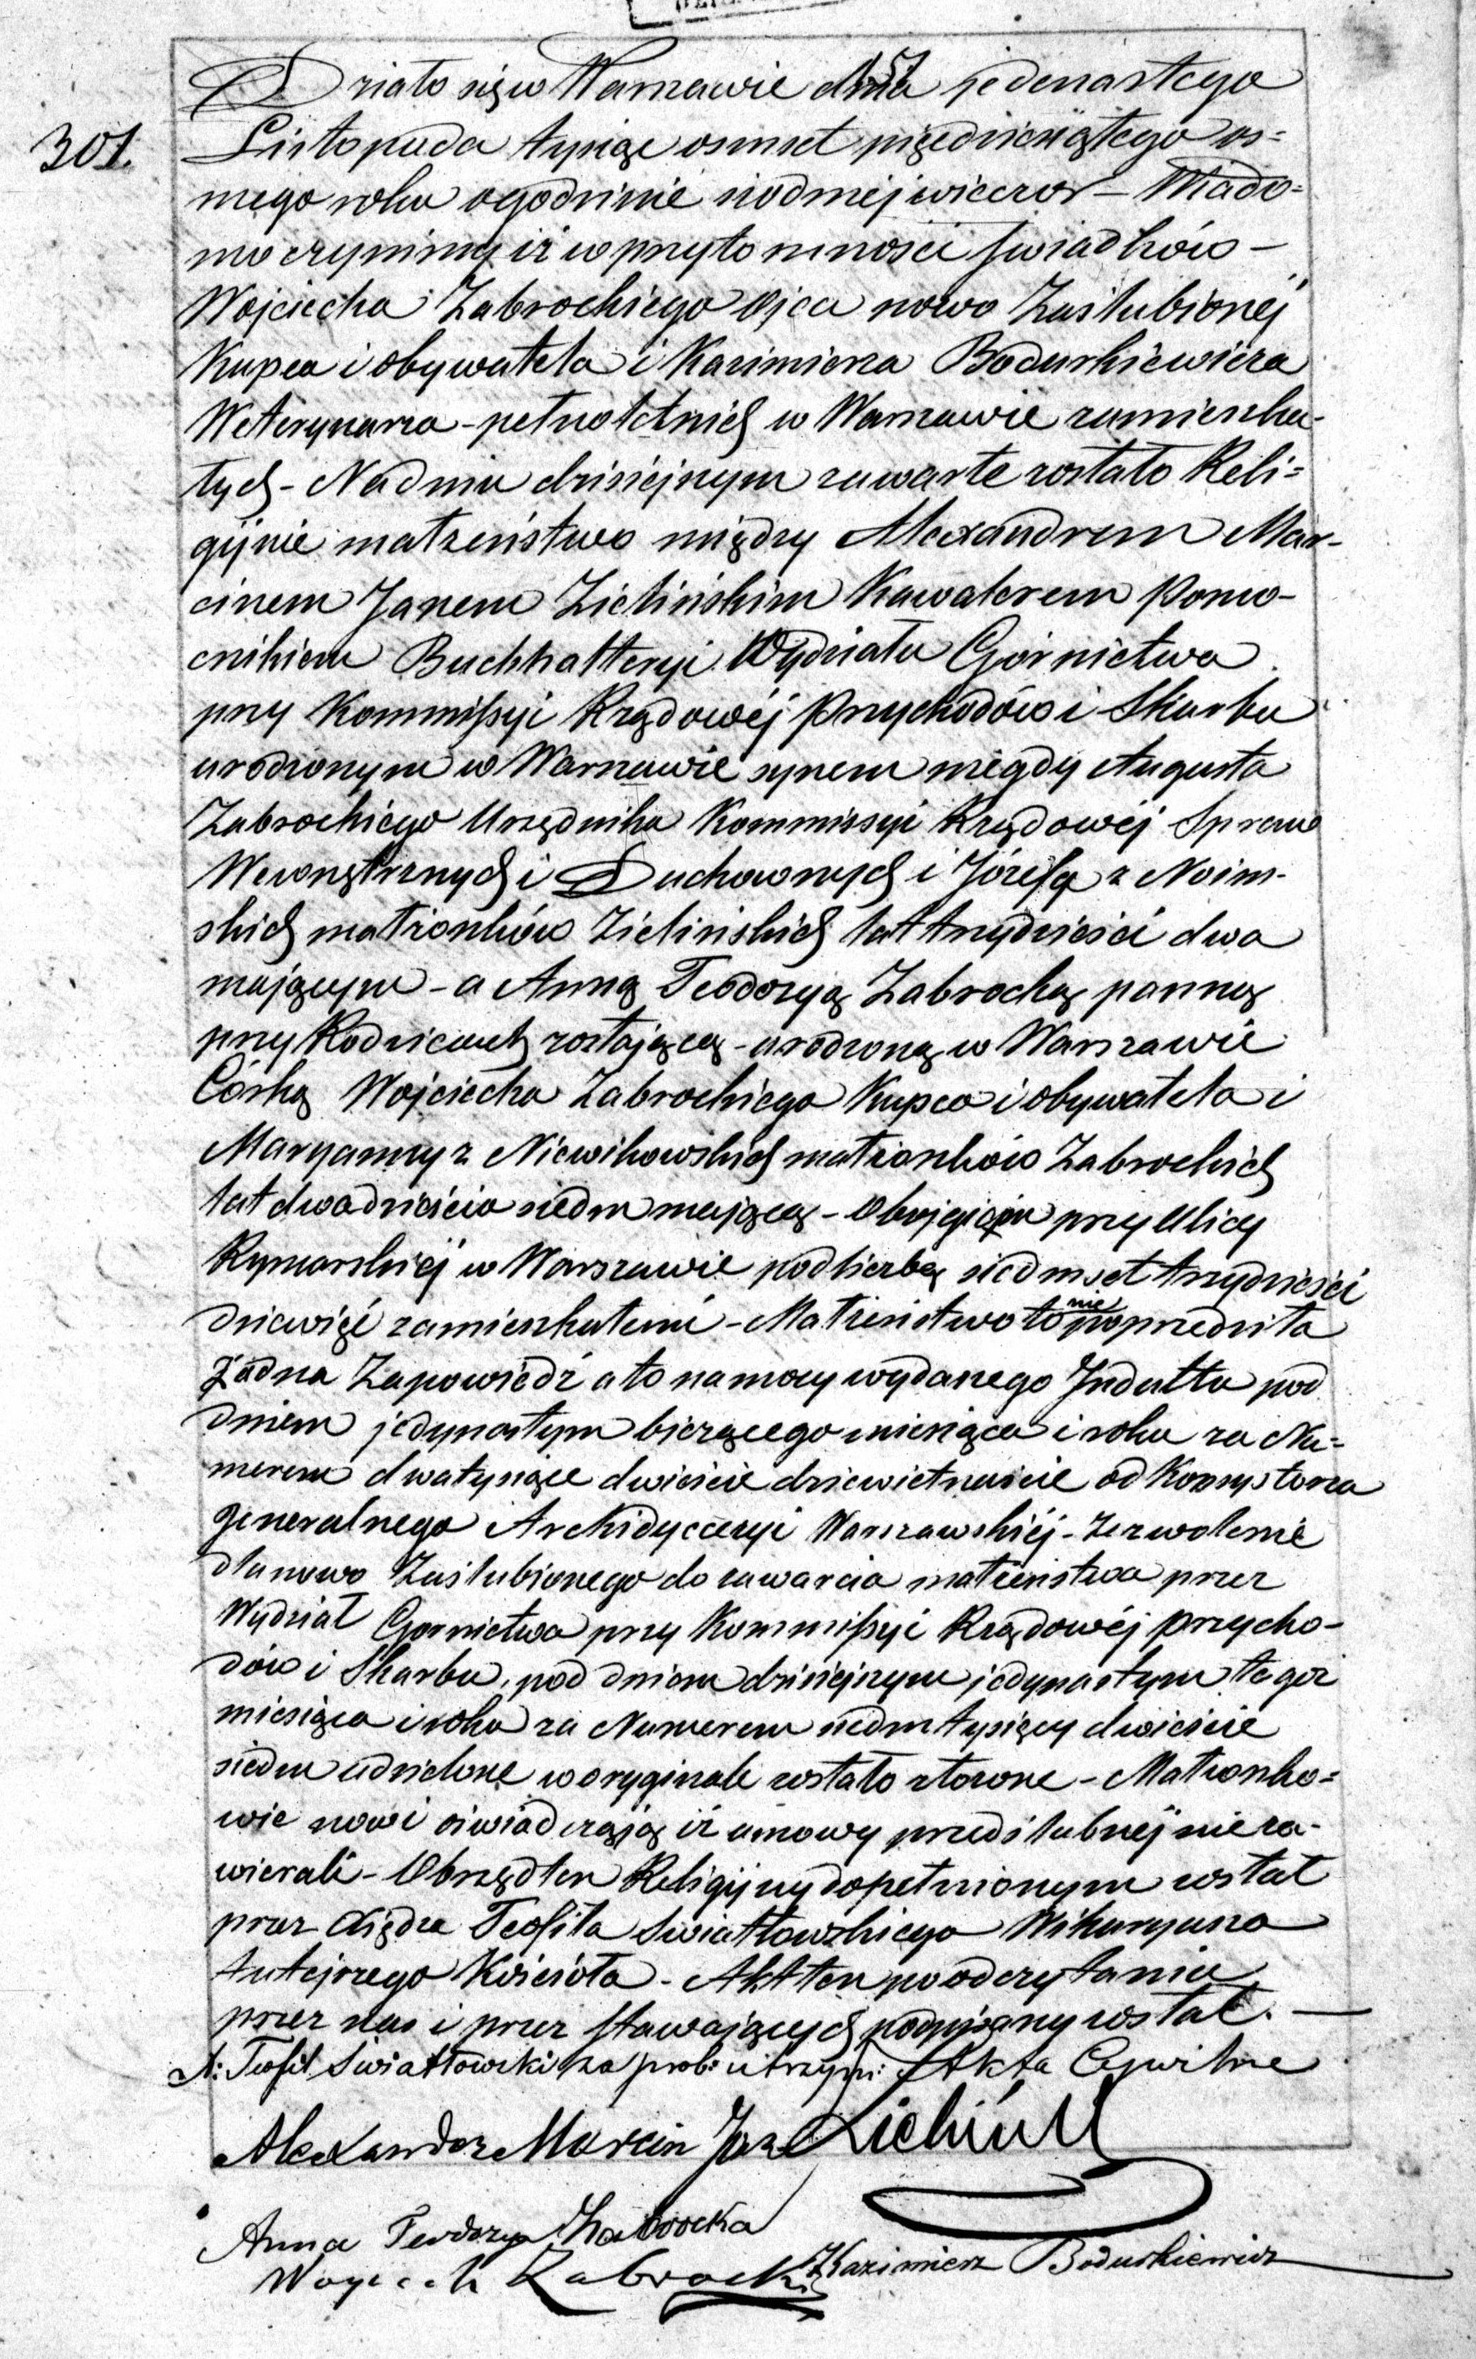 301.
Działo się w Warszawie dnia jedenastego
Listopada tysiąc osmset pięćdziesiątego os=
mego roku o godzinie siodmej wieczor – Wiado=
mo czynimy iż w przytomności świadków –
Wojciecha Zabrockiego Ojca nowo Zaślubionéj
Kupca i obywatela i Kazimierza Bodurkiewicza
Weterynarza – pełnoletnich w Warszawie zamieszka-
łych – Na dniu dzisiejszym zawarte zostało Reli=
gijnie małżeństwo między Alexandrem Mar-
cinem Janem Zielińskim Kawalerem Pomo-
cnikiem Buchhalteryi Wydziału Górnictwa
przy Kommissyi Rządowéj Przychodów i Skarbu
urodzonym w Warszawie synem niegdy Augusta
Zabrockiego Urzędnika Kommissyi Rządowéj Spraw
Wewnętrznych i Duchownych i Józefy z Noim-
skich małżonków Zielińskich lat trzydzieści dwa
mającym – a Anną Teodozyą Zabrocką panną
przy Rodzicach zostającą – urodzoną w Warszawie
Córką Wojciecha Zabrockiego Kupca i obywatela i
Maryanny z Niewikowskich małżonków Zabrockich
lat dwadzieścia siedm mającą – Obojgiem przy Ulicy
Rymarskiéj w Warszawie pod liczbą siedmset trzydzieści
dziewięć zamieszkałemi – Małżeństwo to nie poprzedziła
żadna Zapowiedź a to na mocy wydanego Indultu pod
dniem jedynastym bieżącego miesiąca i roku za Nu=
merem dwa tysiące dwieście dziewietnaście od Konsystorza
Generalnego Archidyecezyi Warszawskiéj – Zezwolenie
dla nowo Zaślubionego do zawarcia małżeństwa przez
Wydział Gornictwa przy Kommissyi Rządowéj Przycho-
dów i Skarbu, pod dniem dzisiejszym jedynastym tegoż
miesiąca i roku za Numerem siedm tysięcy dwieście
siedm udzielone w oryginale zostało złożone – Małżonko=
wie nowi oświadczają iż umowy przedślubnéj nie za-
wierali – Obrzęd ten Religijny dopełnionym został
przez Xiędza Teofila Swiatłowskiego Wikaryusza
tutejszego Kościoła – Akt ten po odczytaniu
przez nas i przez stawających podpisany został. —
X: Teofil Swiatłowski za prob: utrzym: Akta Cywilne
Alexander Marcin Jan Zieliński
Anna Teodozya Zabrocka
Kazimierz Bodurkiewicz
Woyciech Zabrocki